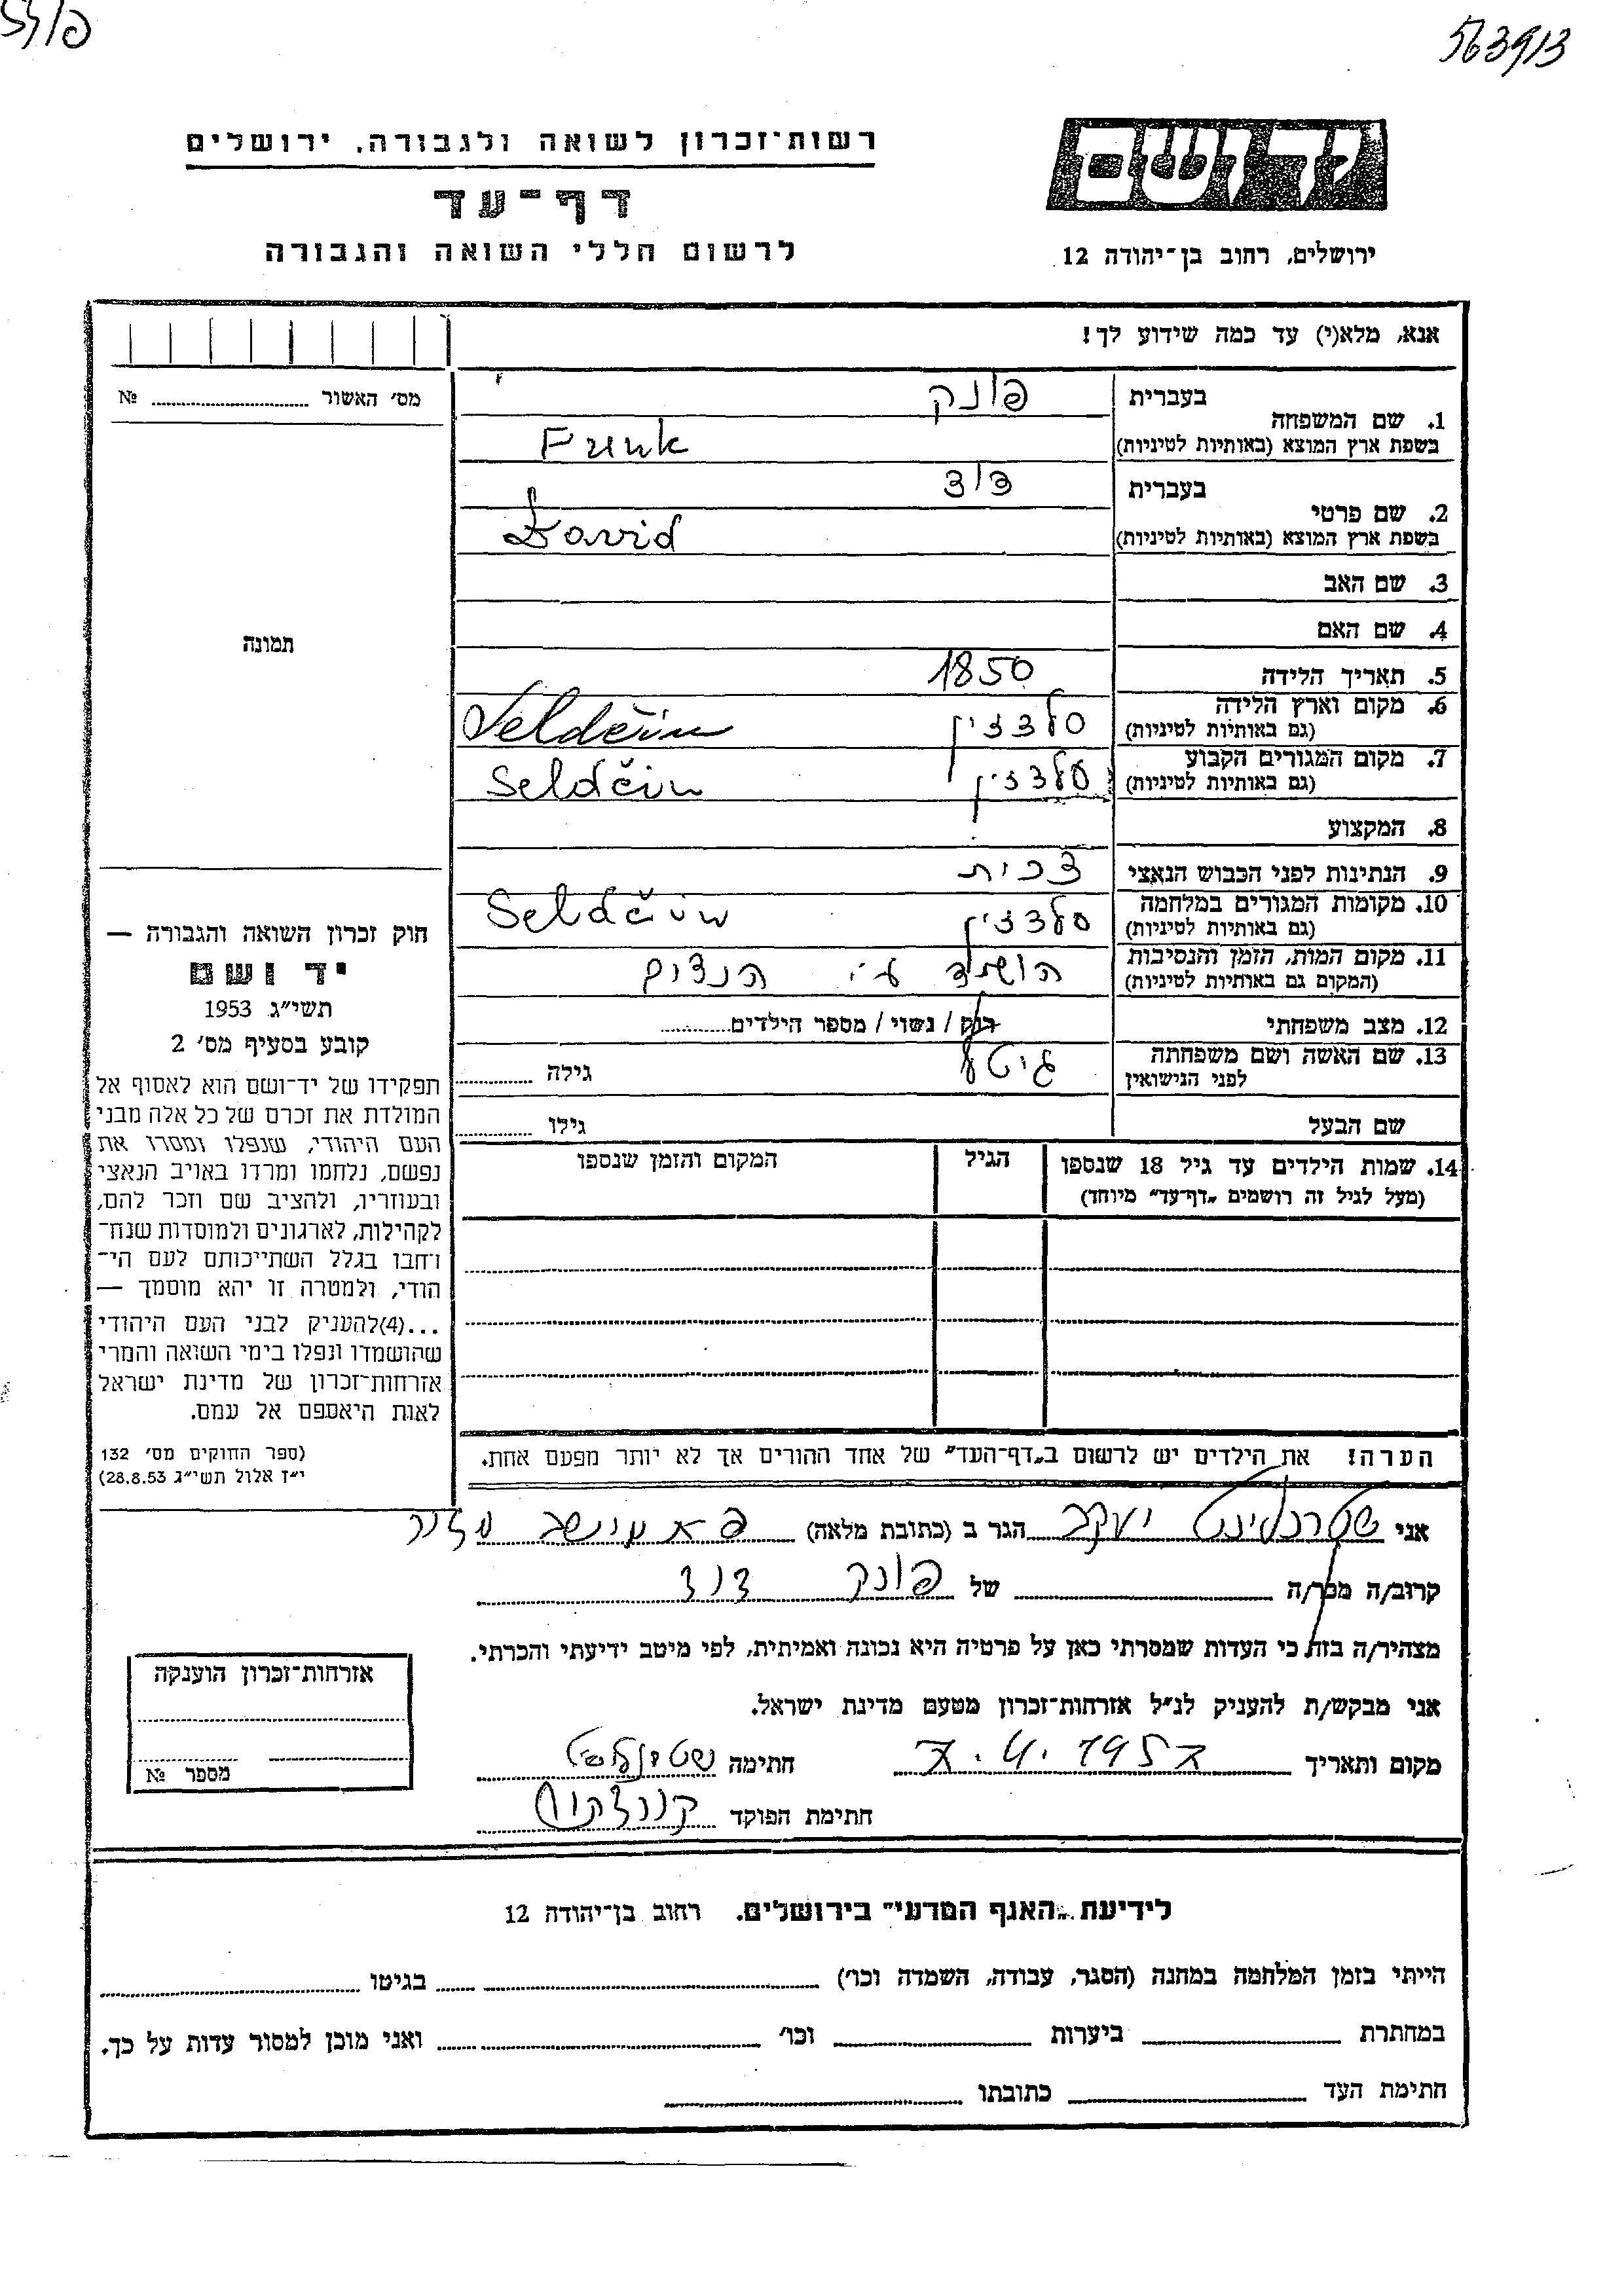 563913
יד ושם
ירושלים, רחוב בן־יהודה 12
רשות־זכרון לשואה ולגבורה, ירושלים
דף־עד
לרשום חללי השואה והגבורה
אנא, מלא(י) עד כמה שידוע לך!
מס׳ האשור № 
1. שם המשפחה בעברית פונק
בשפת ארץ המוצא (באותיות לטיניות) Funk
2. שם פרטי בעברית דוד
בשפת ארץ המוצא (באותיות לטיניות) David
3. שם האב
4. שם האם
5. תאריך הלידה 1850
6. מקום וארץ הלידה סלדצין Seldčin
(גם באותיות לטיניות)
7. מקום המגורים הקבוע סלדצין Seldčin
(גם באותיות לטיניות)
8. המקצוע
9. הנתינות לפני הכבוש הנאצי צ׳כית
10. מקומות המגורים במלחמה סלדצין Seldčin
(גם באותיות לטיניות)
11. מקום המות, הזמן והנסיבות הושמד ע״י הנצים
(המקום גם באותיות לטיניות)
12. מצב משפחתי רוק / נשוי / מספר הילדים
13. שם האשה ושם משפחתה גיטל גילה
לפני הנישואין
שם הבעל גילו
14. שמות הילדים עד גיל 18 שנספו הגיל המקום והזמן שנספו
(מעל לגיל זה רושמים „דף־עד״ מיוחד)
הערה! את הילדים יש לרשום ב„דף־העד״ של אחד ההורים אך לא יותר מפעם אחת.
תמונה
חוק זכרון השואה והגבורה —
יד ושם
תשי״ג 1953
קובע בסעיף מס׳ 2
תפקידו של יד־ושם הוא לאסוף אל
המולדת את זכרם של כל אלה מבני
העם היהודי, שנפלו ומסרו את
נפשם, נלחמו ומרדו באויב הנאצי
ובעוזריו, ולהציב שם וזכר להם,
לקהילות, לארגונים ולמוסדות שנח־
רבו בגלל השתייכותם לעם הי־
הודי, ולמטרה זו יהא מוסמך —
...(4) להעניק לבני העם היהודי
שהושמדו ונפלו בימי השואה והמרי
אזרחות־זכרון של מדינת ישראל
לאות היאספם אל עמם.
(ספר החוקים מס׳ 132
י״ז אלול תשי״ג 28.8.53)
אני יעקב הגר ב (כתובת מלאה) מושב מזור
קרוב/ה מכר/ה של פונק דוד
מצהיר/ה בזה כי העדות שמסרתי כאן על פרטיה היא נכונה ואמיתית, לפי מיטב ידיעתי והכרתי.
אני מבקש/ת להעניק לנ״ל אזרחות־זכרון מטעם מדינת ישראל.
מקום ותאריך 7.4.1957 חתימה
חתימת הפוקד
אזרחות־זכרון הוענקה
מספר №
לידיעת „האגף המדעי״ בירושלים, רחוב בן־יהודה 12
הייתי בזמן המלחמה במחנה (הסגר, עבודה, השמדה וכו׳) בגיטו
במחתרת ביערות וכו׳ ואני מוכן למסור עדות על כך.
חתימת העד כתובתו